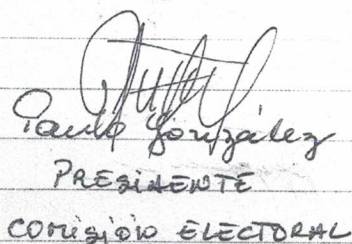 Paulo González
PRESIDENTE
COMISIÓN ELECTORAL